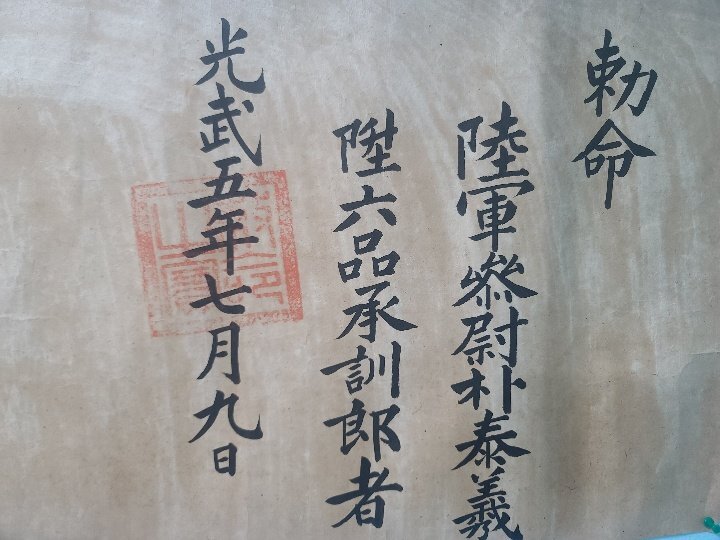 勅命
陸軍叅尉朴泰羲
陞六品承訓郎者
光武五年七月九日